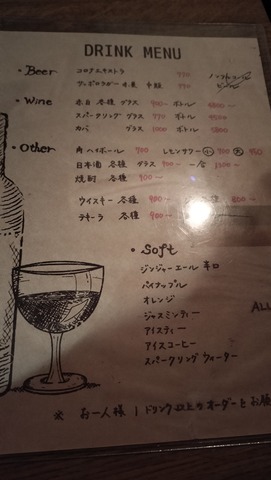 DRINK MENU
・Beer コロナエキストラ 770
サッポロラガー 赤星 中瓶 770
・Wine 赤白 各種 グラス 900~ ボトル
スパークリング グラス 770 ボトル
カバ グラス 1000 ボトル 5800
・Other 角ハイボール 700 レモンサワー 小 500 大 950
日本酒 各種 グラス 900~ 一合 1300~
焼酎 各種 900~
ウイスキー 各種 900~ 800~
テキーラ 各種 900
・Soft
ジンジャーエール 辛口
パイナップル
オレンジ
ジャスミンティー
アイスティー
アイスコーヒー
スパークリングウォーター
ALL
※ お一人様 1ドリンク以上のオーダーをお願